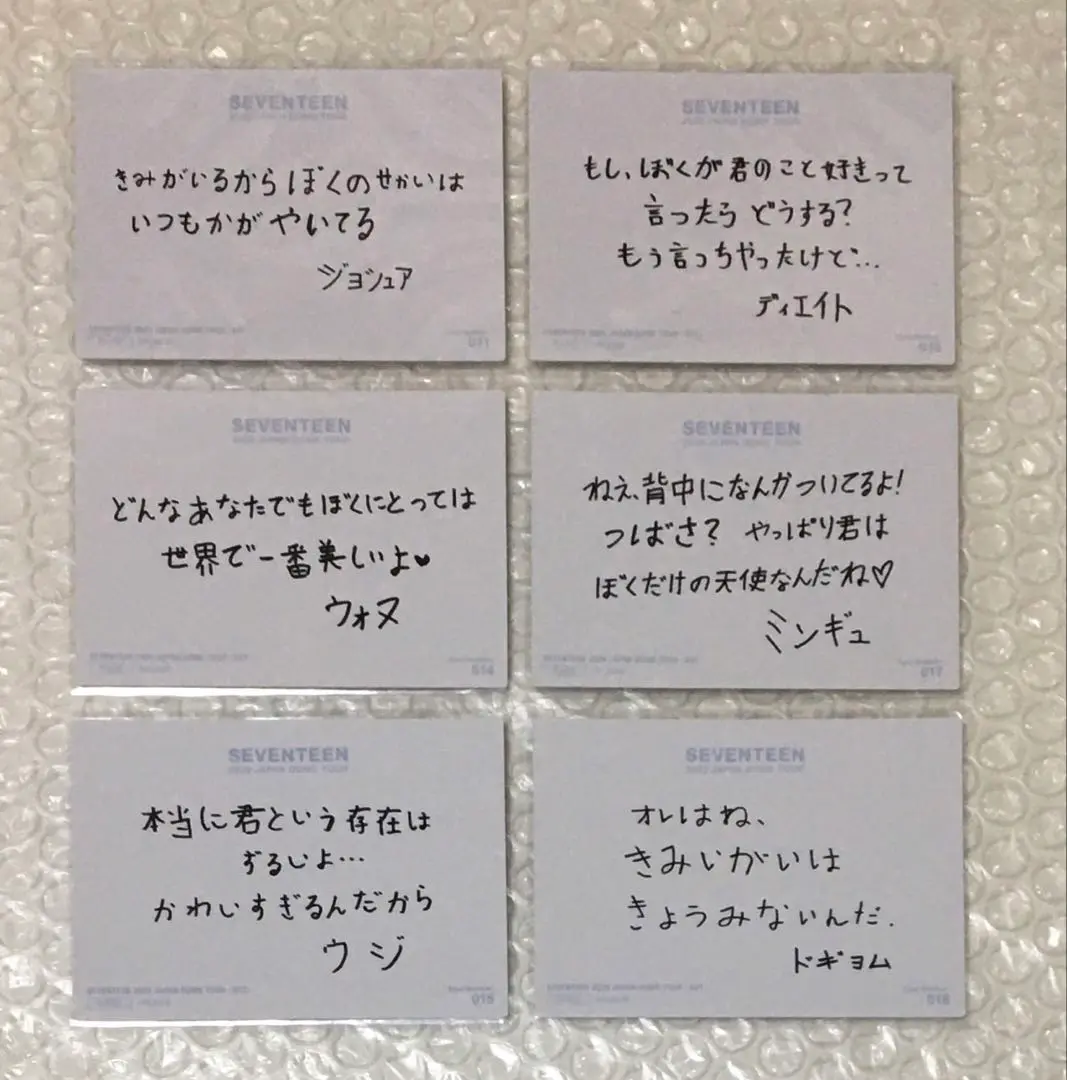 SEVENTEEN
きみがいるからぼくのせかいは
いつもかがやいてる
ジョシュア
SEVENTEEN
もし、ぼくが君のこと好きって
言ったらどうする?
もう言っちゃったけど…
ディエイト
SEVENTEEN
どんなあなたでもぼくにとっては
世界で一番美しいよ♥
ウォヌ
014
SEVENTEEN
ねえ、背中になんかついてるよ!
つばさ? やっぱり君は
ぼくだけの天使なんだね♡
ミンギュ
017
SEVENTEEN
本当に君という存在は
ずるいよ…
かわいすぎるんだから
ウジ
015
SEVENTEEN
オレはね、
きみいがいは
きょうみないんだ.
ドギョム
018